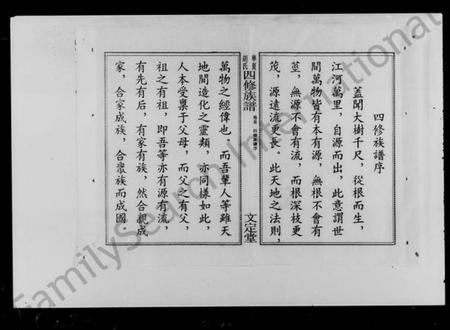 四修族譜序
蓋聞大樹千尺，從根而生，
江河萬里，自源而出，此意謂世
間萬物皆有本有源，無根不會有
莖，無源不會有流，而根深枝更
茂，源遠流更長。此天地之法則，
四修族譜
文定堂
萬物之經偉也。而吾輩人等雖天
地間造化之靈類，亦同樣如此，
人本受稟于父母，而父之有父，
祖之有祖，即吾等亦有源有流，
有先有后，有家有族，然合親成
家，合家成族，合衆族而成國
FamilySearch International